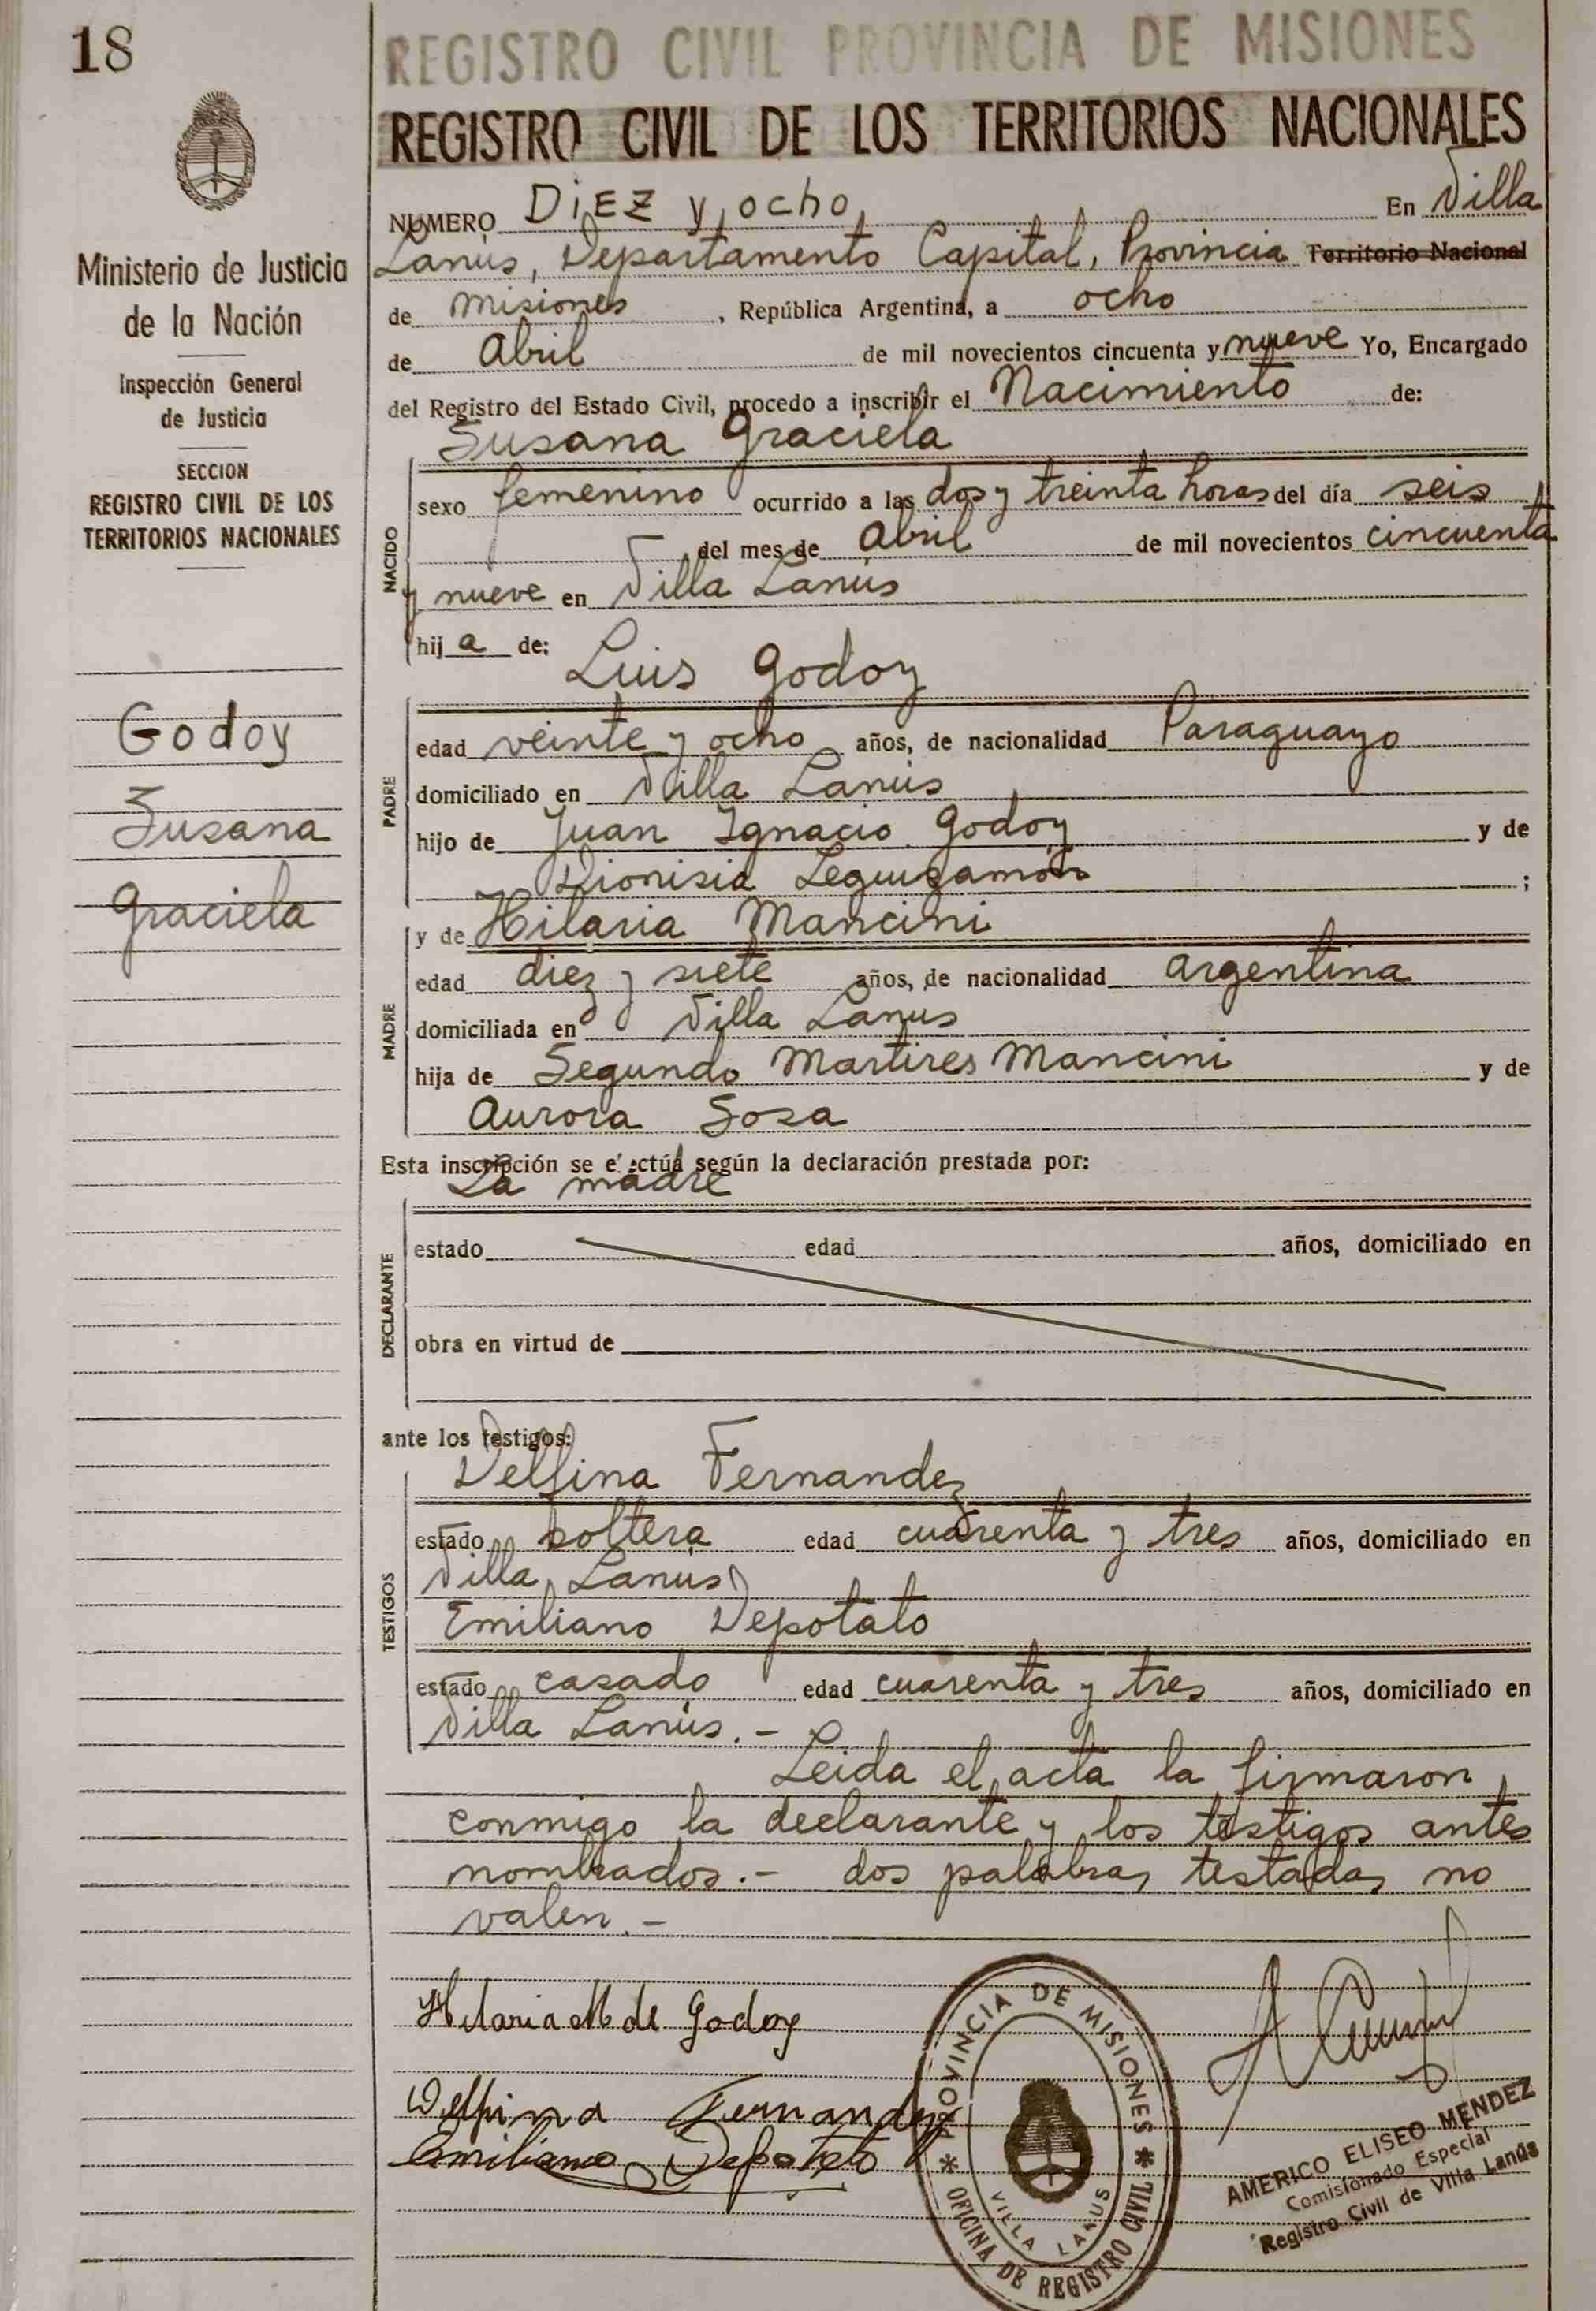 18
REGISTRO CIVIL PROVINCIA DE MISIONES
REGISTRO CIVIL DE LOS TERRITORIOS NACIONALES
Ministerio de Justicia
de la Nación
Inspección General
de Justicia
SECCION
REGISTRO CIVIL DE LOS
TERRITORIOS NACIONALES
Godoy
Susana
Graciela
NUMERO DiEZ y ocho En Villa
Lanús, Departamento Capital, Provincia Territorio Nacional
de Misiones, República Argentina, a ocho
de Abril de mil novecientos cincuenta y nueve Yo, Encargado
del Registro del Estado Civil, procedo a inscribir el Nacimiento de:
Susana Graciela
NACIDO
sexo femenino ocurrido a las dos y treinta horas del día seis
del mes de Abril de mil novecientos cincuenta
y nueve en Villa Lanús
hija de:
Luis Godoy
PADRE
edad veinte y ocho años, de nacionalidad Paraguayo
domiciliado en Villa Lanús
hijo de Juan Ignacio Godoy y de
Dionisia Leguizamón ;
y de Hilaria Mancini
MADRE
edad diez y siete años, de nacionalidad Argentina
domiciliada en Villa Lanus
hija de Segundo Martires Mancini y de
Aurora Sosa
Esta inscripción se e ectúa según la declaración prestada por:
La madre
DECLARANTE
estado edad años, domiciliado en
obra en virtud de
ante los testigos:
Delfina Fernandez
TESTIGOS
estado soltera edad cuarenta y tres años, domiciliado en
Villa Lanús
Emiliano Depotato
estado casado edad cuarenta y tres años, domiciliado en
Villa Lanús.-
Leida el acta la firmaron
conmigo la declarante y los testigos antes
nombrados.- dos palabras testadas no
valen.-
Hilaria M de Godoy
Delfina Fernandez
Emiliano Depotato
PROVINCIA DE MISIONES
OFICINA DE REGISTRO CIVIL
VILLA LANUS
AMERICO ELISEO MENDEZ
Comisionado Especial
Registro Civil de Villa Lanús